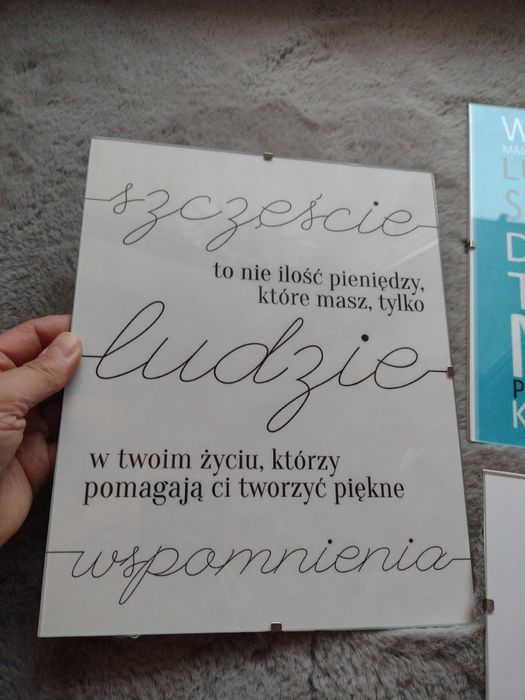 szczęście
to nie ilość pieniędzy,
które masz, tylko
ludzie
w twoim życiu, którzy
pomagają ci tworzyć piękne
wspomnienia